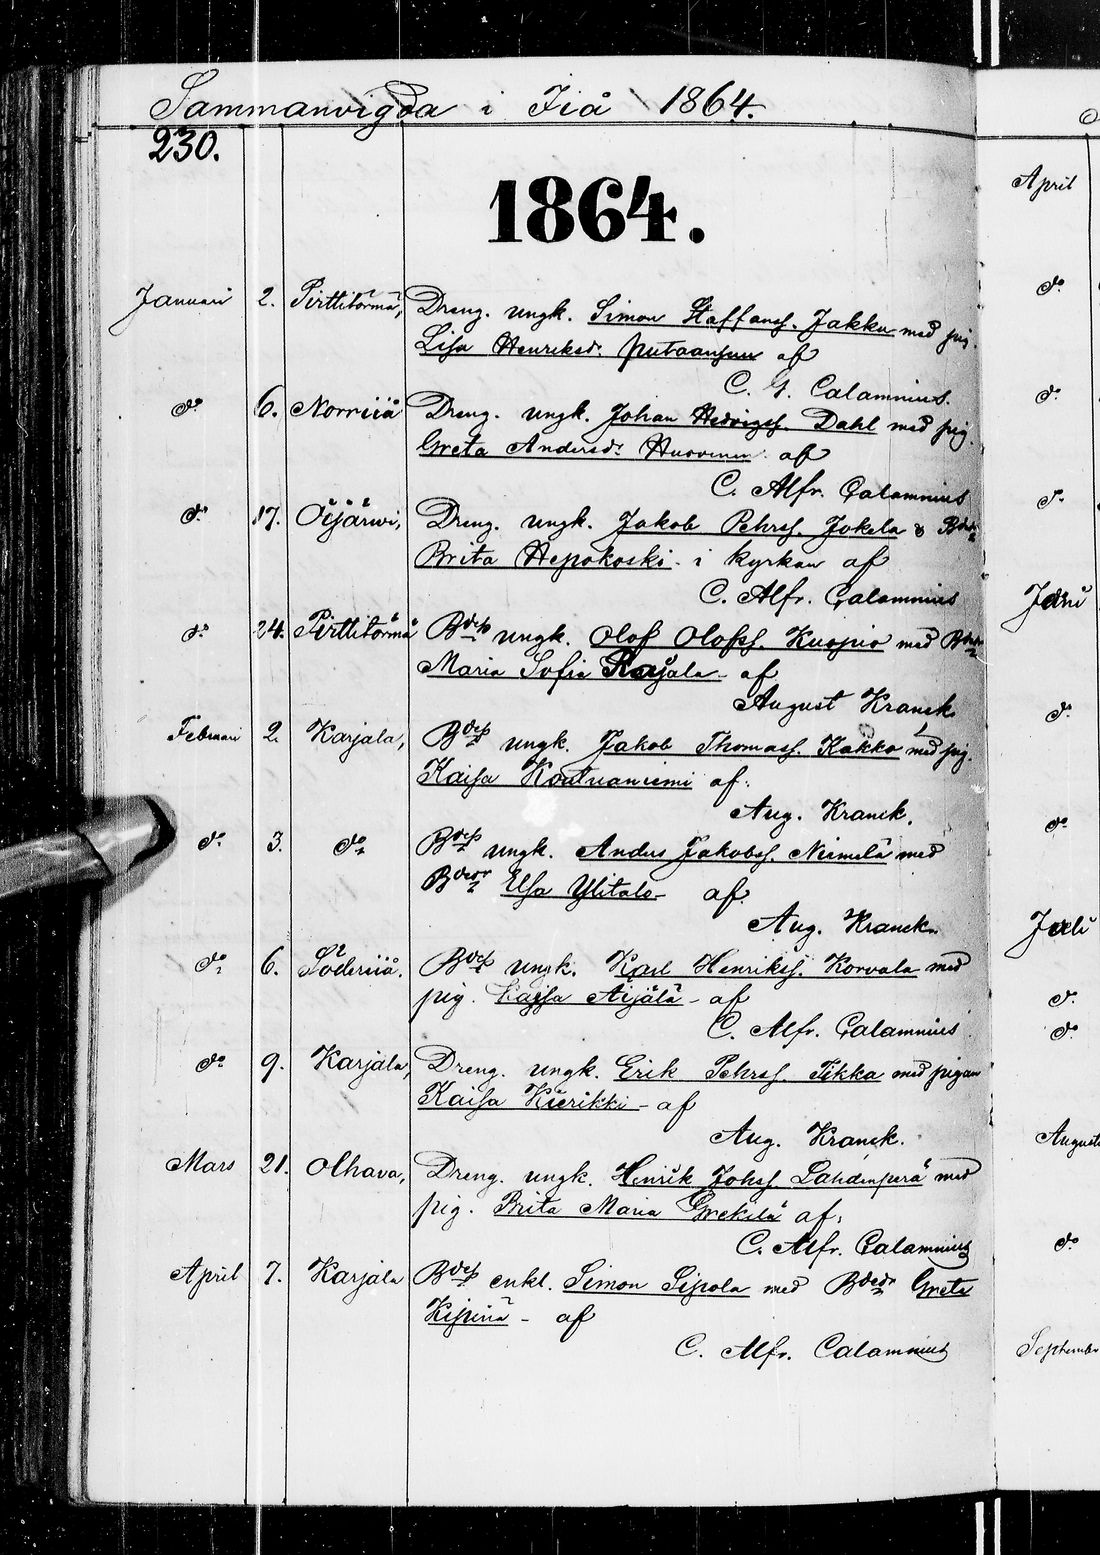 Sammanvigda i Iiå 1864.
230.
1864.
Januari 2. Pirttitörmä, Dreng. ungk. Simon Staffanss. Jakku med pig.
Lisa Henriksdr. af
C. G. Calamnius.
do 6. Norriiå Dreng. ungk. Johan Hedvigss. Dahl med pig.
Greta Andersdr Huovinen af
C. Alfr. Calamnius
do 17. Oijärwi, Dreng. ungk. Jakob Pehrss. Jokela & Bdodr
Brita Hepokoski i kyrkan af
C. Alfr. Calamnius
do 24. Pirttitörmä Bdes ungk. Olof Olofss. Kuopio med Bdodr
Maria Sofia Karjala af
August Kranck
Februari 2. Karjala, Bdes ungk. Jakob Thomass. Kakko med pig.
Kaisa af.
Aug. Kranck.
do 3. do Bdes ungk. Anders Jakobss. Niemelä med
Bdedr Elsa Ylitalo af.
Aug. Kranck.
do 6. Söderiiå. Bdes ungk. Karl Henrikss. Korvala med
pig. Kajsa Äijälä af
C. Alfr. Calamnius
do 9. Karjala, Dreng. ungk. Erik Pehrss. Tikka med pigan
Kaisa Kierikki af
Aug. Kranck.
Mars 21. Olhava, Dreng. ungk. Henrik Johss. Lahdenperä med
pig. Brita Maria Grekilä af.
C. Alfr. Calamnius
April 7. Karjala Bdes enkl. Simon Sipola med Bdedr Greta
Kipinä af
C. Alfr. Calamnius
April
do
do
do
Juni
do
do
Juli
do
do
Augusti
do
September